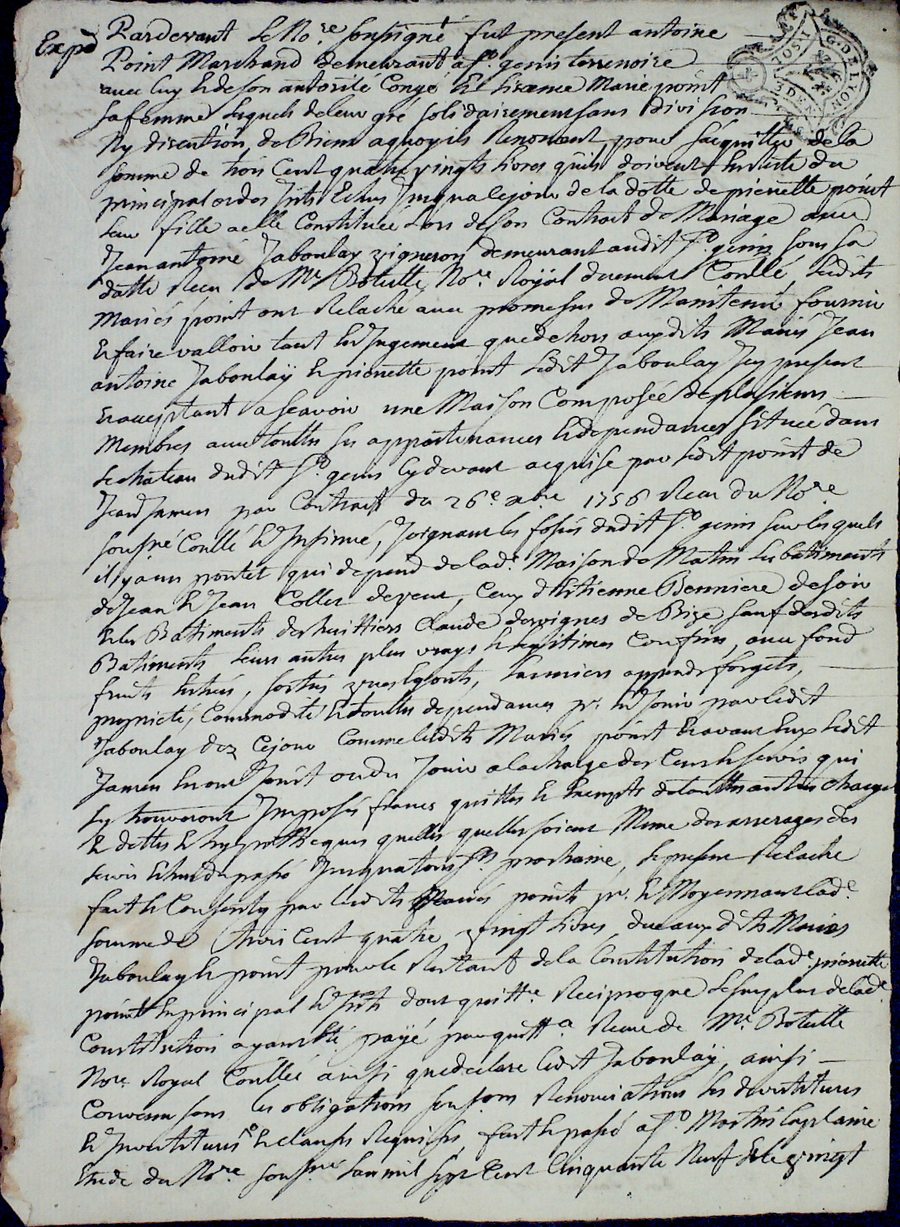 Expd
G. D. LYON
2 SOLS
3 DEN
Pardevant le No.re soussigné fut present antoine
Point Marchand demeurant a St. genis terrenoire
avec luy et de son autorité Congé et licance Marie point
sa femme lesquels de leur gré solidairement sans division
Ny discution de Biens aquoy ils Renoncent, pour s'acquitter de la
somme de trois Cent quatre vingts livres qu'ils doivent de reste du
principal ou des Jnts Echus Jusqua ce jour de la dotte de pierrette point
leur fille a elle Constituée Lors de son Contrat de Mariage avec
Jean antoine Jaboulay vigneron demeurant audit St. genis sous sa
datte Receu de Mr. Botutte No.re Royal duement Conllé, lesdits
Mariés point ont Relaché avec promesse de Maintenir fournir
et faire valloir tant En Jugement que dehors auxdits Mariés Jean
antoine Jaboulaÿ et pierrette point ledit Jaboulay Jcy present
et acceptant a scavoir une Maison Composée de plusieurs
Membres avec touttes ses appartenances et dependances située dans
le chateau dudit St. genis cy devant acquise par ledit point de
Jean Jamen par Contrat du 26.e xbre 1756 Receu du No.re
soussné Conllé et Insinué, Joignant les fossés dudit St. genis sur lesquels
il y a un pontet qui depend de lad.e Maison de Matin les batiments
de Jean et Jean Collet de vent, Ceux d'Estienne Bonniere de soir
et les Batiments des heritiers Claude desvignes de Bize sauf desdits
Batiments leurs autres plus vrays et legitimes Confins, avec fond
fruits entrées, sorties
proprieté, Commodité et touttes dependances pr. En Jouir par ledit
Jaboulay dez Cejour Comme lesdits Mariés point Et avant Eux ledit
Jamen En ont Jouit ou du Jouir a la charge des Cens et servis qui
sy trouveront Imposés francs quittes et Exempts de touttes autres charges
et dettes et hypotheques quelles quelles soient Meme des arrerages des
servis Echus du passé Jusqua toussts. prochaine le present Relache
fait et Consenty par lesdits Mariés point pr. Et Moyennant lad.e
somme de trois Cent quatre vingt livres due auxdits Mariés
Jaboulay et point pour le Restant de la Constitution de lad.e pierrette
point En principal et Jnts dont quitte. Reciproque le surplus de lad.e
Constitution ayant été payé par quitt.ce Receue de Mr. Botutte
No.re Royal Conllée ainsi que declare ledit Jaboulaÿ, ainsi
Convenu sous les obligations soumons Renonciations les devestitures
et Jnvestitures et clauses Requises, fait et passé a St. Martin la plaine
Etude du No.re soussné L'an mil sept Cent Cinquante Neuf et le vingt